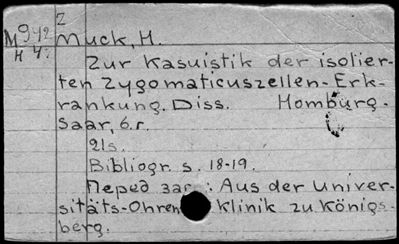 2
M 942 Muck, H.
H 42
Zur Kasuistik der isolier-
ten Zygomaticuszellen-Erk-
rankung. Diss. Homburg-
Saar, б.г.
21s.
Bibliogr. s. 18-19.
Перед заг.: Aus der Univer-
sitäts-Ohren klinik zu Königs-
berg.